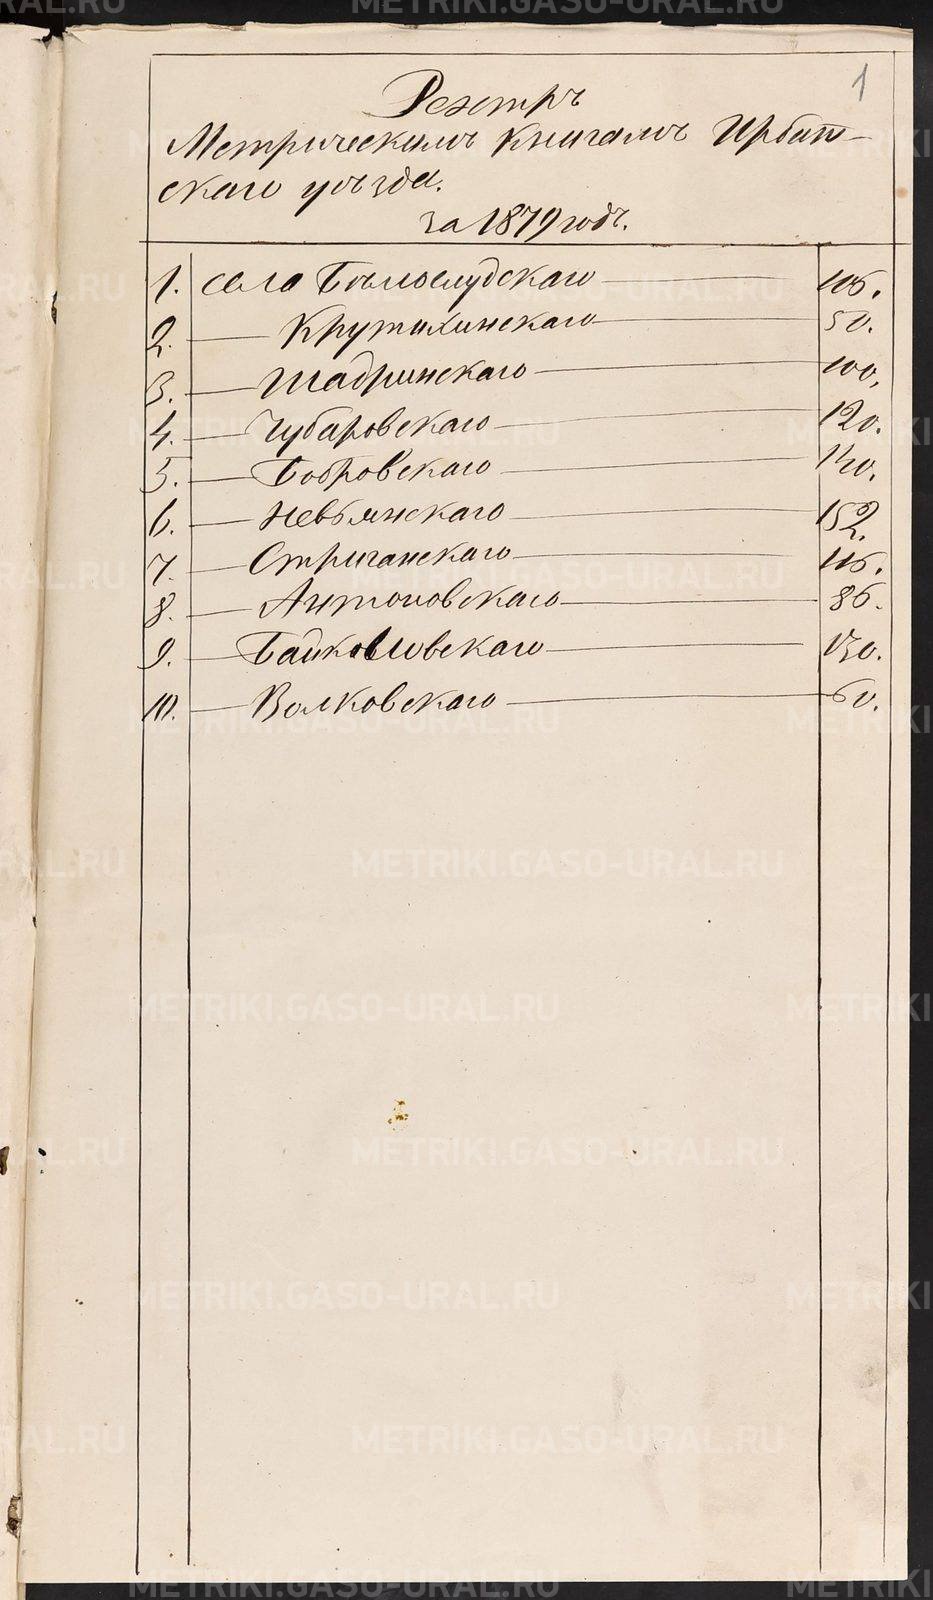 1
Реэстръ
Метрическимъ Книгамъ Ирбит-
скаго уѣзда.
за 1879 годъ.
1. села Бѣлослудскаго 106.
2. Крутихинскаго 50.
3. Шадринскаго 100,
4. Чубаровскаго 120.
5. Бобровскаго
6. Невьянскаго 152.
7. Стриганскаго 116.
8. Антоновскаго 86.
9. Байкаловскаго 130.
10. Волковскаго 60.
METRIKI.GASO-URAL.RU